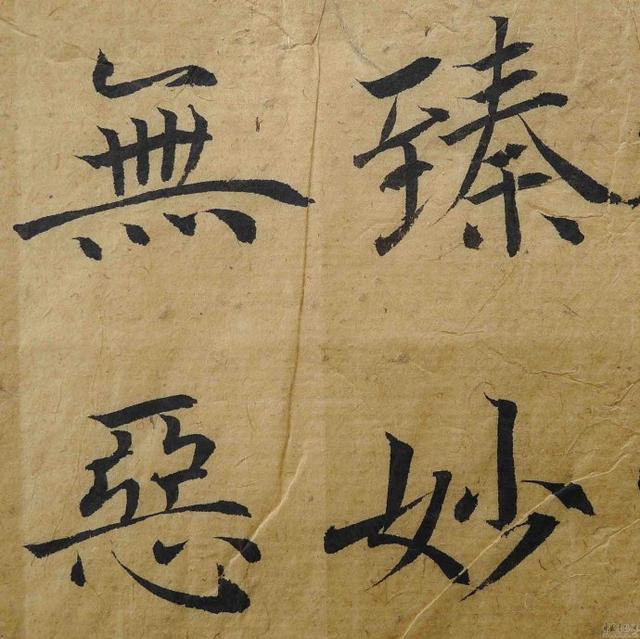 臻妙
無惡